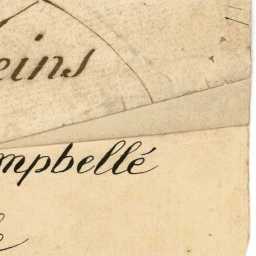 eins
mpbellé